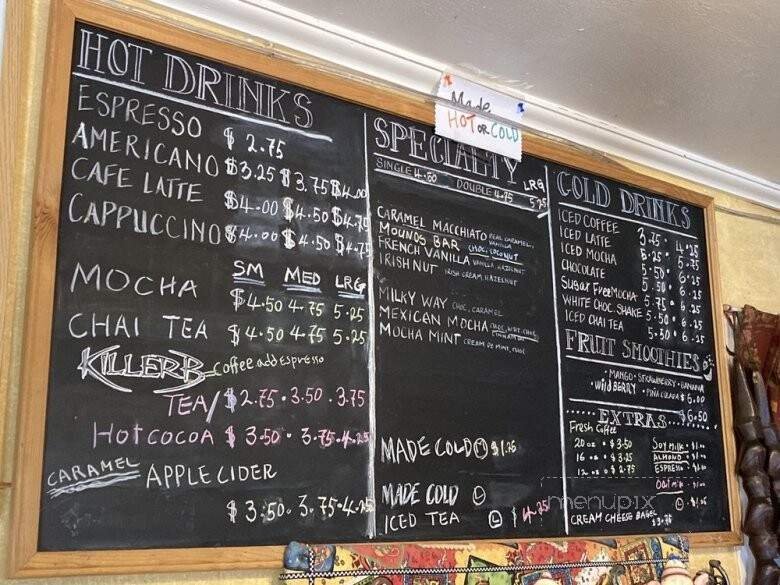 HOT DRINKS
ESPRESSO $2.75
AMERICANO $3.25 $3.75 $4.00
CAFE LATTE $4.00 $4.50 $4.75
CAPPUCCINO $4.00 $4.50 $4.75
SM MED LRG
MOCHA $4.50 4.75 5.25
CHAI TEA $4.50 4.75 5.25
KILLER B Coffee add Espresso
TEA/ $2.75 • 3.50 • 3.75
Hot cocoa $3.50 • 3.75 • 4.25
CARAMEL APPLE CIDER
$3.50 • 3.75 • 4.25
Made
HOT OR COLD
SPECIALTY
SINGLE 4.50 DOUBLE 4.75 LRG 5.25
CARAMEL MACCHIATO REAL CARAMEL, VANILLA
MOUNDS BAR CHOC, COCONUT
FRENCH VANILLA VANILLA, HAZELNUT
IRISH NUT IRISH CREAM, HAZELNUT
MILKY WAY CHOC, CARAMEL
MEXICAN MOCHA
MOCHA MINT CREME DE MINT, CHOC
MADE COLD M $1.25
MADE COLD L
ICED TEA L $4.25
COLD DRINKS
ICED COFFEE 3.75 • 4.25
ICED LATTE 5.25 • 5.75
ICED MOCHA 5.50 • 6.25
CHOCOLATE 5.50 • 6.25
Sugar Free MOCHA 5.75 • 6.25
WHITE CHOC. SHAKE 5.50 • 6.25
ICED CHAI TEA 5.50 • 6.25
FRUIT SMOOTHIES
• MANGO • STRAWBERRY • BANANA
• WILD BERRY • PIÑA COLADA $6.00
$6.50
EXTRAS
Fresh Coffee
20 oz • $3.50 SOY MILK •
16 oz • $3.25 ALMOND •
12 oz • $2.75 ESPRESSO •
Oat milk •
CREAM CHEESE BAGEL
$3.75
menupix